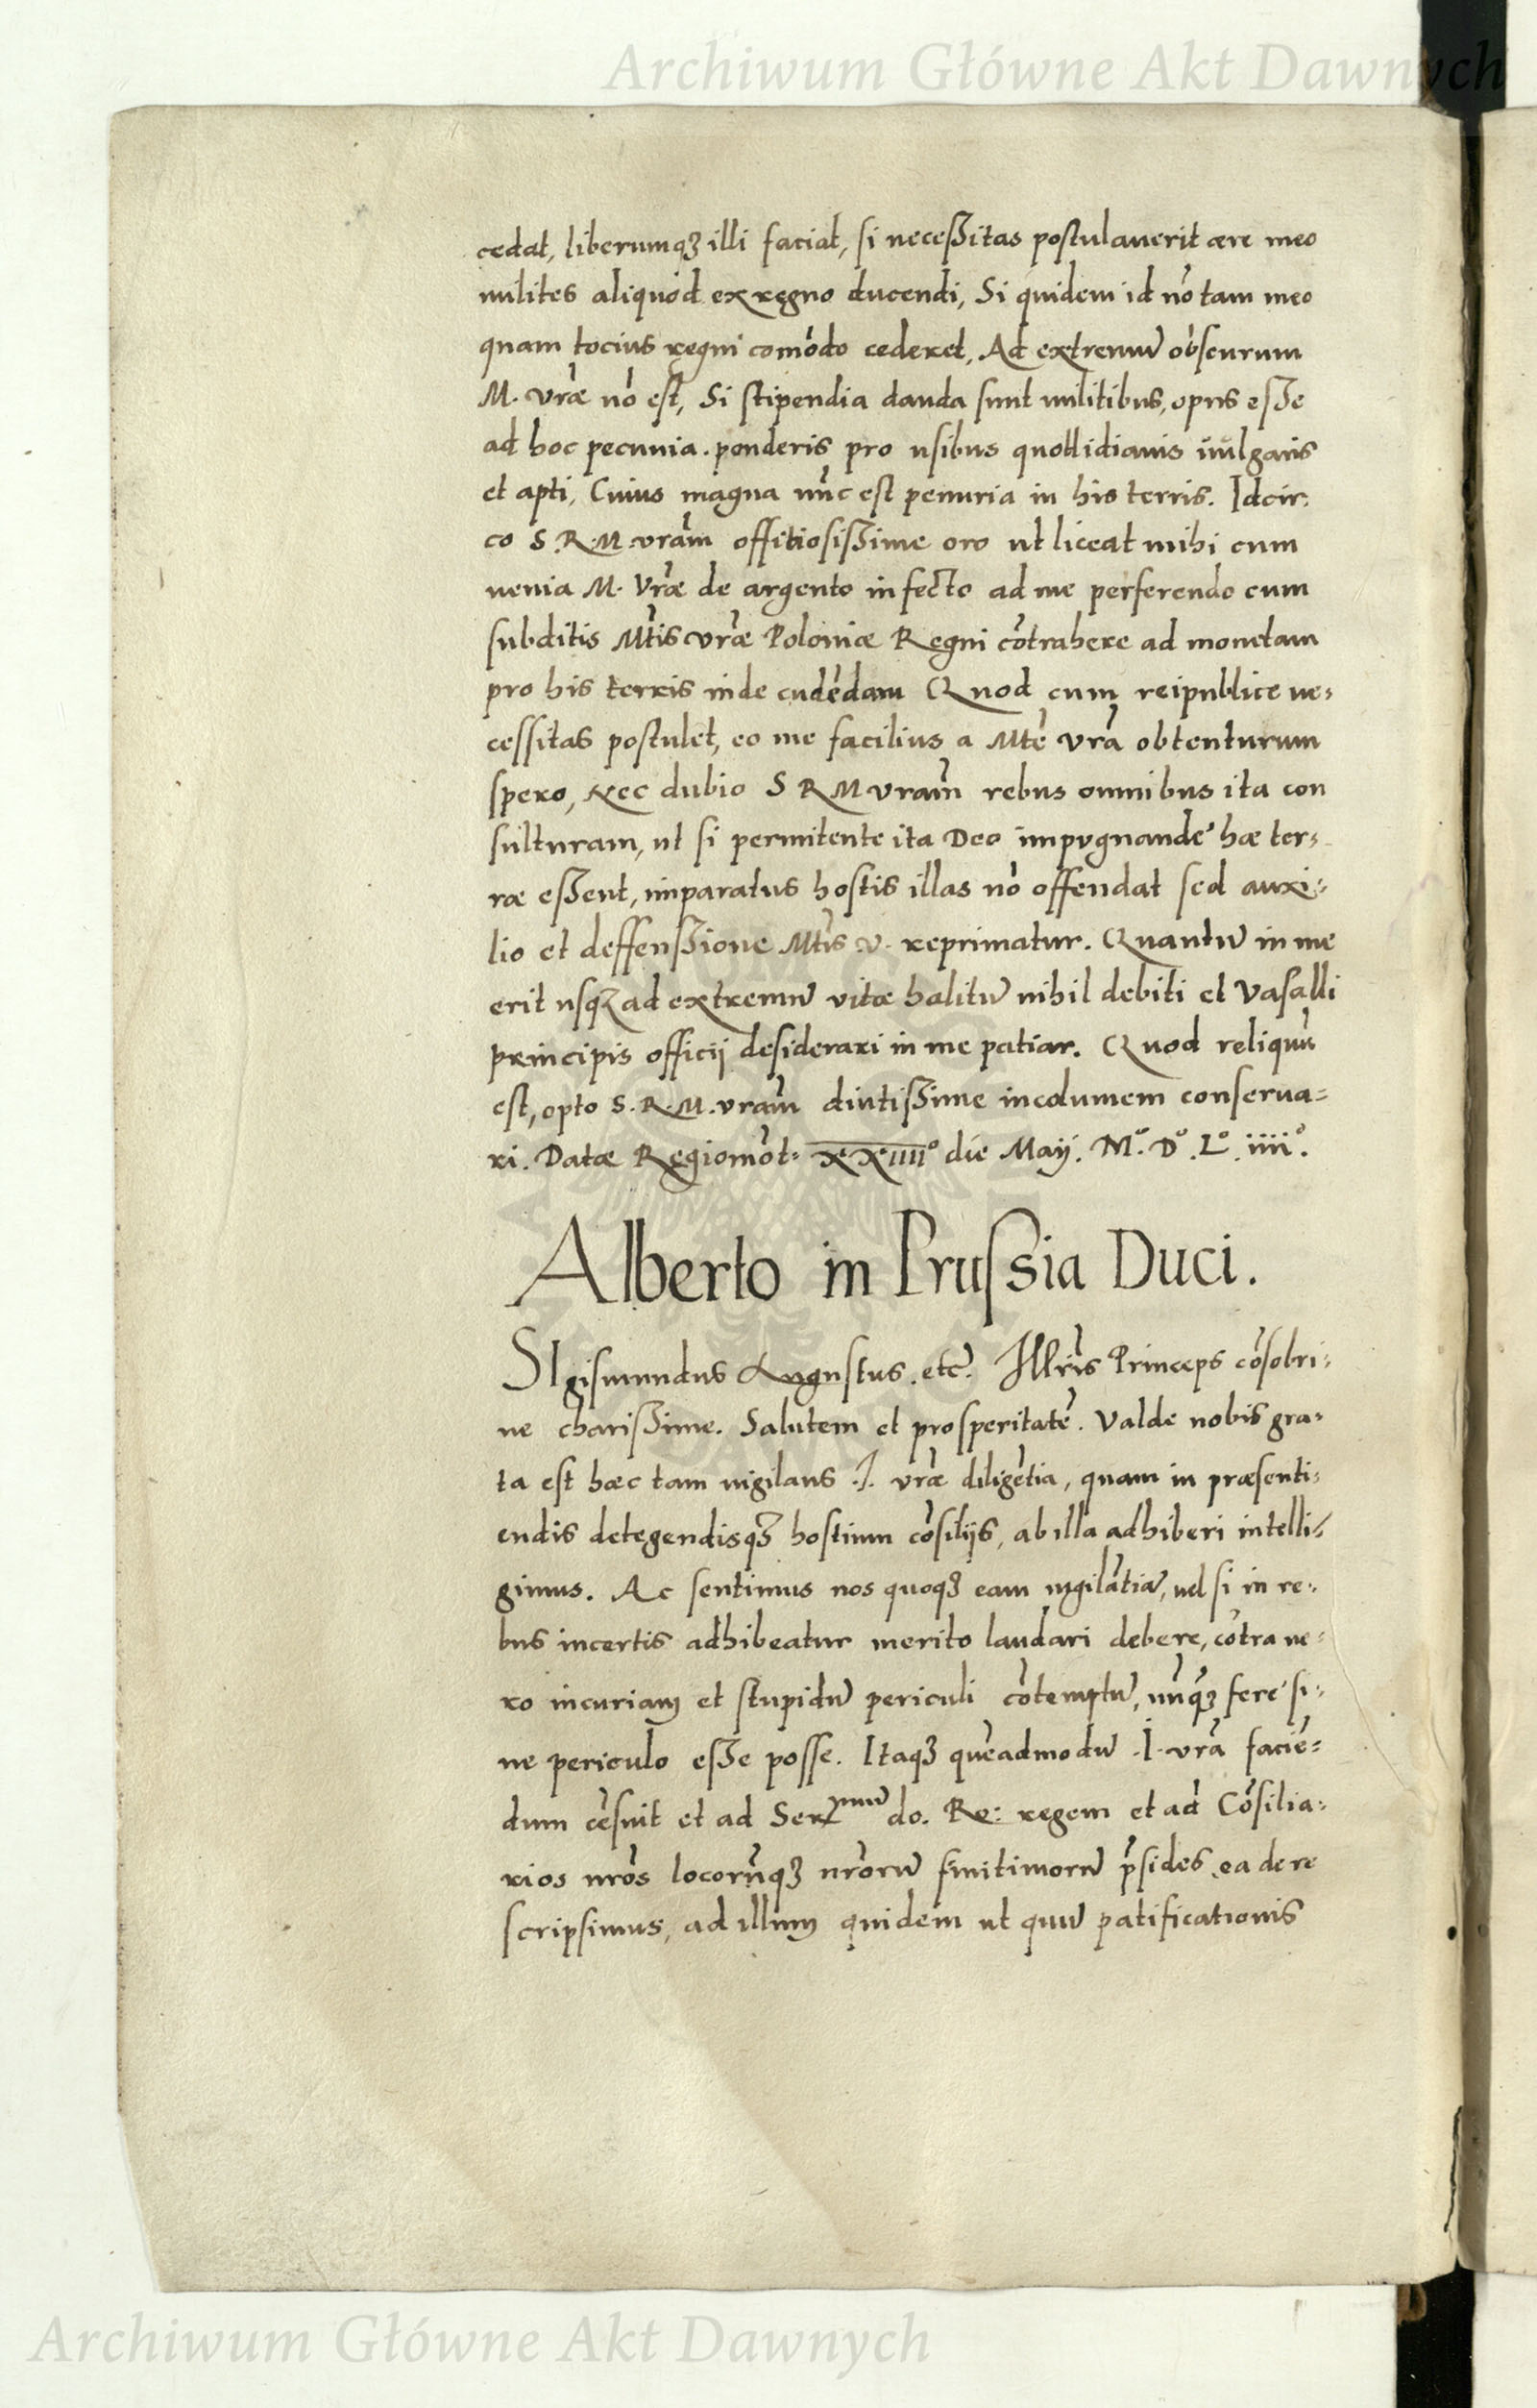 Archiwum Główne Akt Dawnych
cedat, liberumqꝫ illi faciat, si necessitas postulaverit ære meo
milites aliquod ex regno ducendi, Si quidem id nō tam meo
quam tocius regni comōdo cederet. Ad extremū obscurum
M. vr̄æ nō est, Si stipendia danda sunt militibus, opus esse
ad hoc pecunia. ponderis pro usibus quottidianis vulgaris
et apti, Cuius magna nūc est penuria in his terris. Idcir-
co S. R. M. vrām offitiosissime oro ut liceat mihi cum
venia M. Vr̄æ de argento infecto ad me perferendo cum
subditis Mtis vr̄æ Poloniæ Regni cōtrahere ad monetam
pro his terris inde cudēdam Quod cum reipublice ne-
cessitas postulet, eo me facilius a Mtē vrā obtenturum
spero, Nec dubio S R M vrām rebus omnibus ita con
sulturam, ut si permitente ita Deo impugnande hæ ter-
ræ essent, imparatus hostis illas nō offendat sed auxi-
lio et deffenssione Mtis v. reprimatur. Quantū in me
erit usqꝫ ad extremū vitæ halitū nihil debiti et Vasalli
principis officij desiderari in me patiar. Quod reliquū
est, opto S. R. M. vrām diutissime incolumem conserva-
ri. Datæ Regiomōt: xxiiii° die Maij. M.° D.° L.° iiii.°
Alberto in Prussia Duci.
SIgismundus Augustus. etc. Illr̄is Princeps cōsobri-
ne charissime. Salutem et prosperitatē. Valde nobis gra-
ta est hæc tam vigilans .I. vr̄æ diligētia, quam in præsenti-
endis detegendisqꝫ hostium cōsilijs, ab illa adhiberi intelli-
gimus. Ac sentimus nos quoqꝫ eam vigilātiā, vel si in re-
bus incertis adhibeatur merito laudari debere, cōtra ve-
ro incuriam et stupidū periculi cōtemptū, nūqꝫ fere si-
ne periculo esse posse. Itaqꝫ quēadmodū .I. vrā faciē-
dum cēsuit et ad Serᵐᵘᵐ do. Re: regem et ad Cōsilia-
rios nrōs locorūqꝫ nrōrū finitimorū p̄sides ea de re
scripsimus, ad illum quidem ut quū patificationis
Archiwum Główne Akt Dawnych